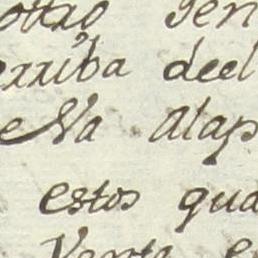 ottro Gen
arriba deel
eNa Alap
estos qua
Venta e